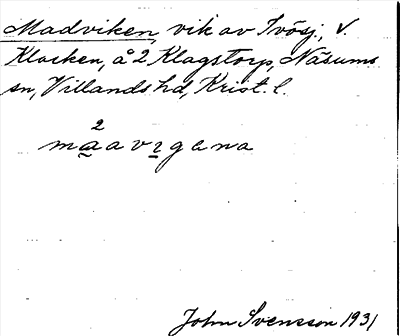 Madviken, vik av Ivösj., V.
Klacken, å 2 Klagstorp, Näsums
sn, Villands hd, Krist. l.
2
maavıgena
John Svensson 1931